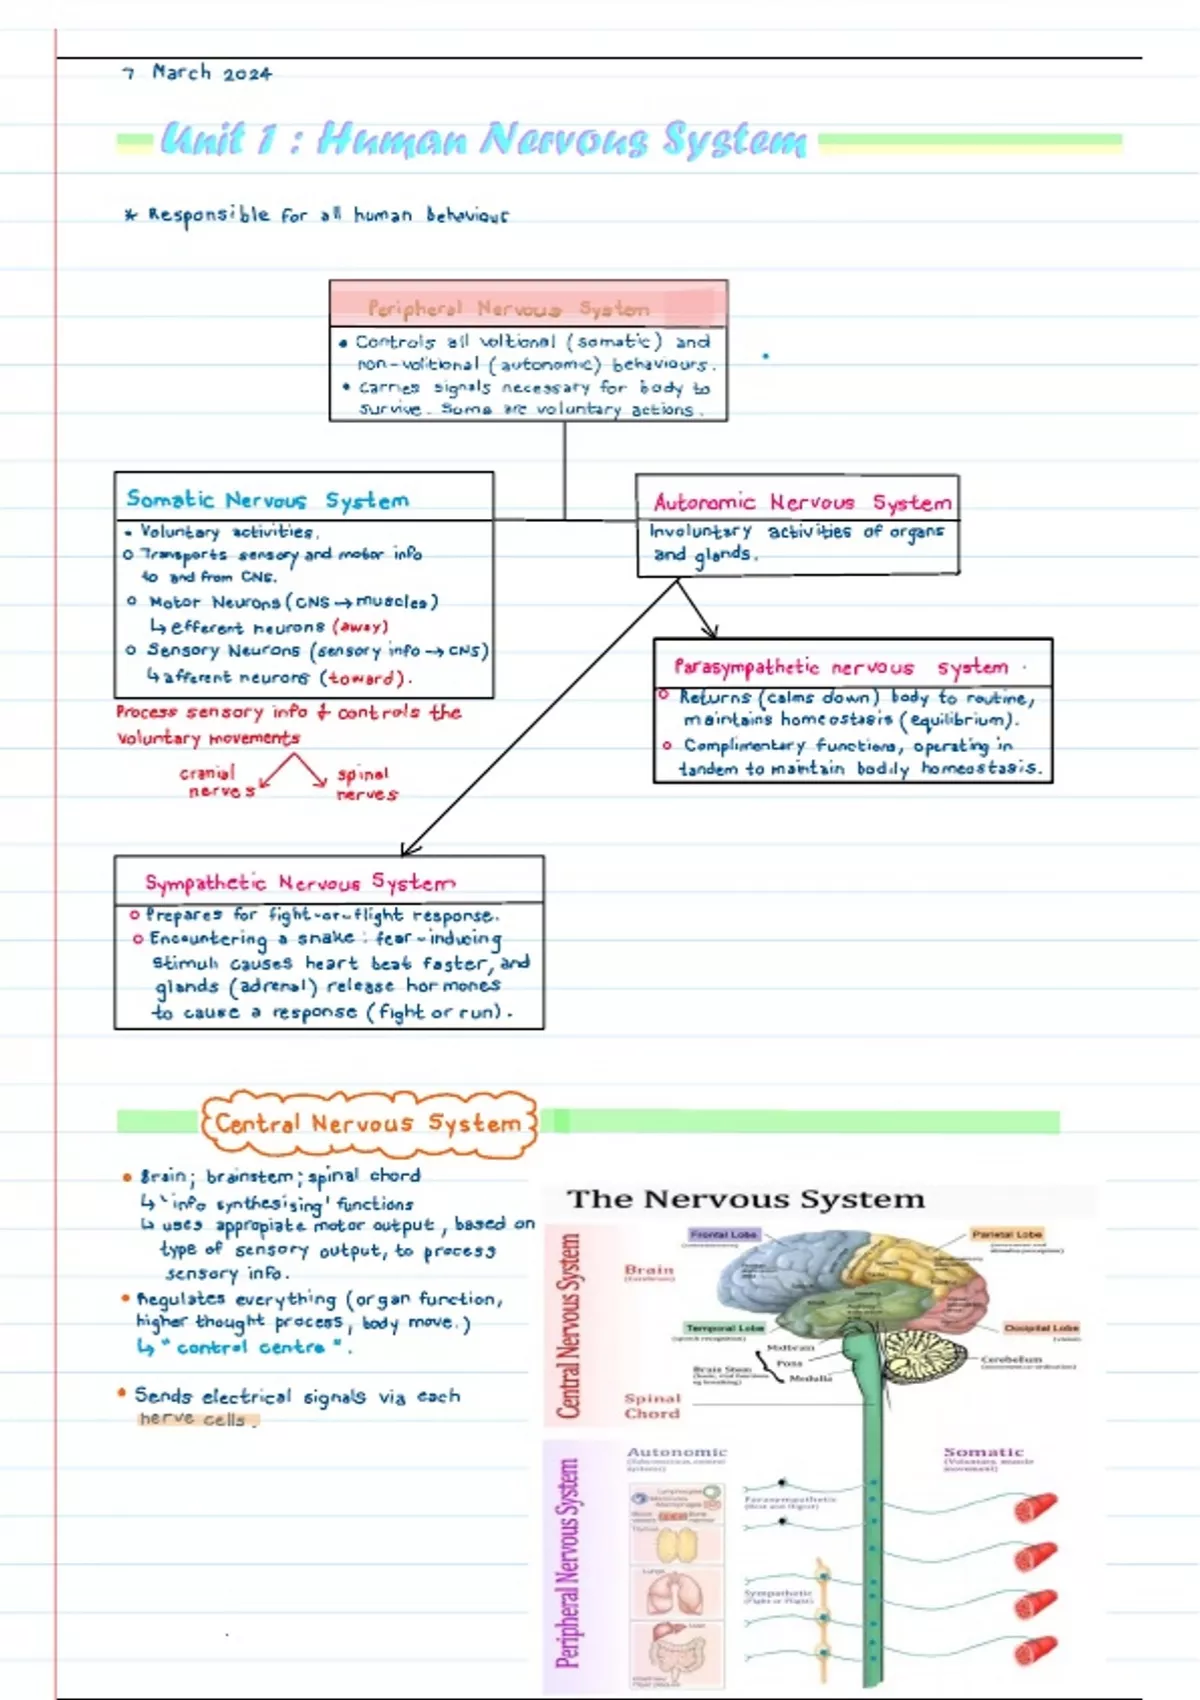 7 March 2024
Unit 1 : Human Nervous System
* Responsible for all human behaviour
Peripheral Nervous System
• Controls all voltional (somatic) and
non-volitional (autonomic) behaviours.
• Carries signals necessary for body to
survive. Some are voluntary actions.
Somatic Nervous System
• Voluntary activities.
○ Transports sensory and motor info
to and from CNS.
○ Motor Neurons (CNS → muscles)
↳ efferent neurons (away)
○ Sensory Neurons (sensory info → CNS)
↳ afferent neurons (toward).
Process sensory info & controls the
voluntary movements
cranial
nerves
spinal
nerves
Autonomic Nervous System
Involuntary activities of organs
and glands.
Parasympathetic nervous system
○ Returns (calms down) body to routine,
maintains homeostasis (equilibrium).
○ Complimentary functions, operating in
tandem to maintain bodily homeostasis.
Sympathetic Nervous System
○ Prepares for fight-or-flight response.
○ Encountering a snake: fear-inducing
stimuli causes heart beat faster, and
glands (adrenal) release hormones
to cause a response (fight or run).
Central Nervous System
• Brain; brainstem; spinal chord
↳ 'info synthesising' functions
↳ uses appropiate motor output, based on
type of sensory output, to process
sensory info.
• Regulates everything (organ function,
higher thought process, body move.)
↳ "control centre".
• Sends electrical signals via each
nerve cells.
The Nervous System
Central Nervous System
Brain
Frontal Lobe
Parietal Lobe
Temporal Lobe
(speech recognition)
Occipital Lobe
(vision)
Midbrain
Pons
Medulla
Brain Stem
Cerebellum
Spinal
Chord
Peripheral Nervous System
Autonomic
Somatic
(Voluntary, muscle
movement)
Parasympathetic
(Rest and Digest)
Sympathetic
(Fight or Flight)
Lungs
Liver